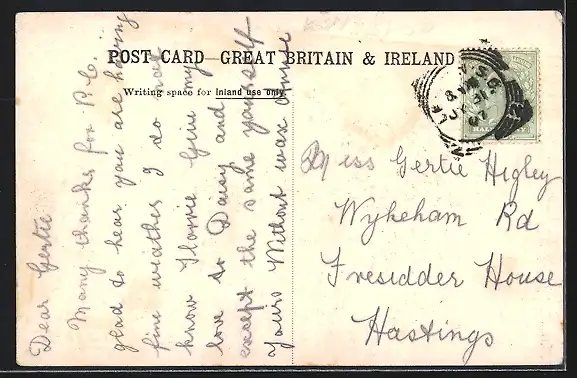 POST CARD—GREAT BRITAIN & IRELAND
Writing space for Inland use only.
Dear Gertie
Many thanks for P.C.
glad to hear you are having
fine weather I do not
know Florrie Give my
love to Daisy and
except the same yourself
Yours Without wax
Miss Gertie Higley
Wykeham Rd
Tresidder House
Hastings
HALF